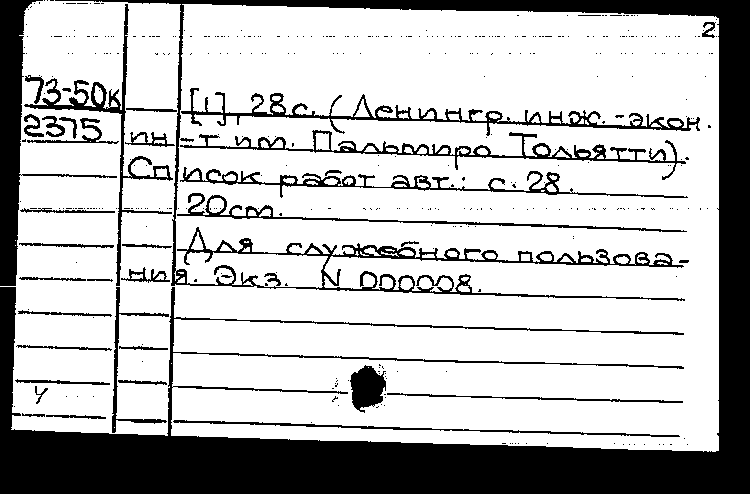 2
73-50к [1], 28с. (Ленингр. инж.-экон.
2375 ин-т им. Пальмиро Тольятти).
Список работ авт.: с. 28.
20см.
Для служебного пользова-
ния. Экз. N 000008.